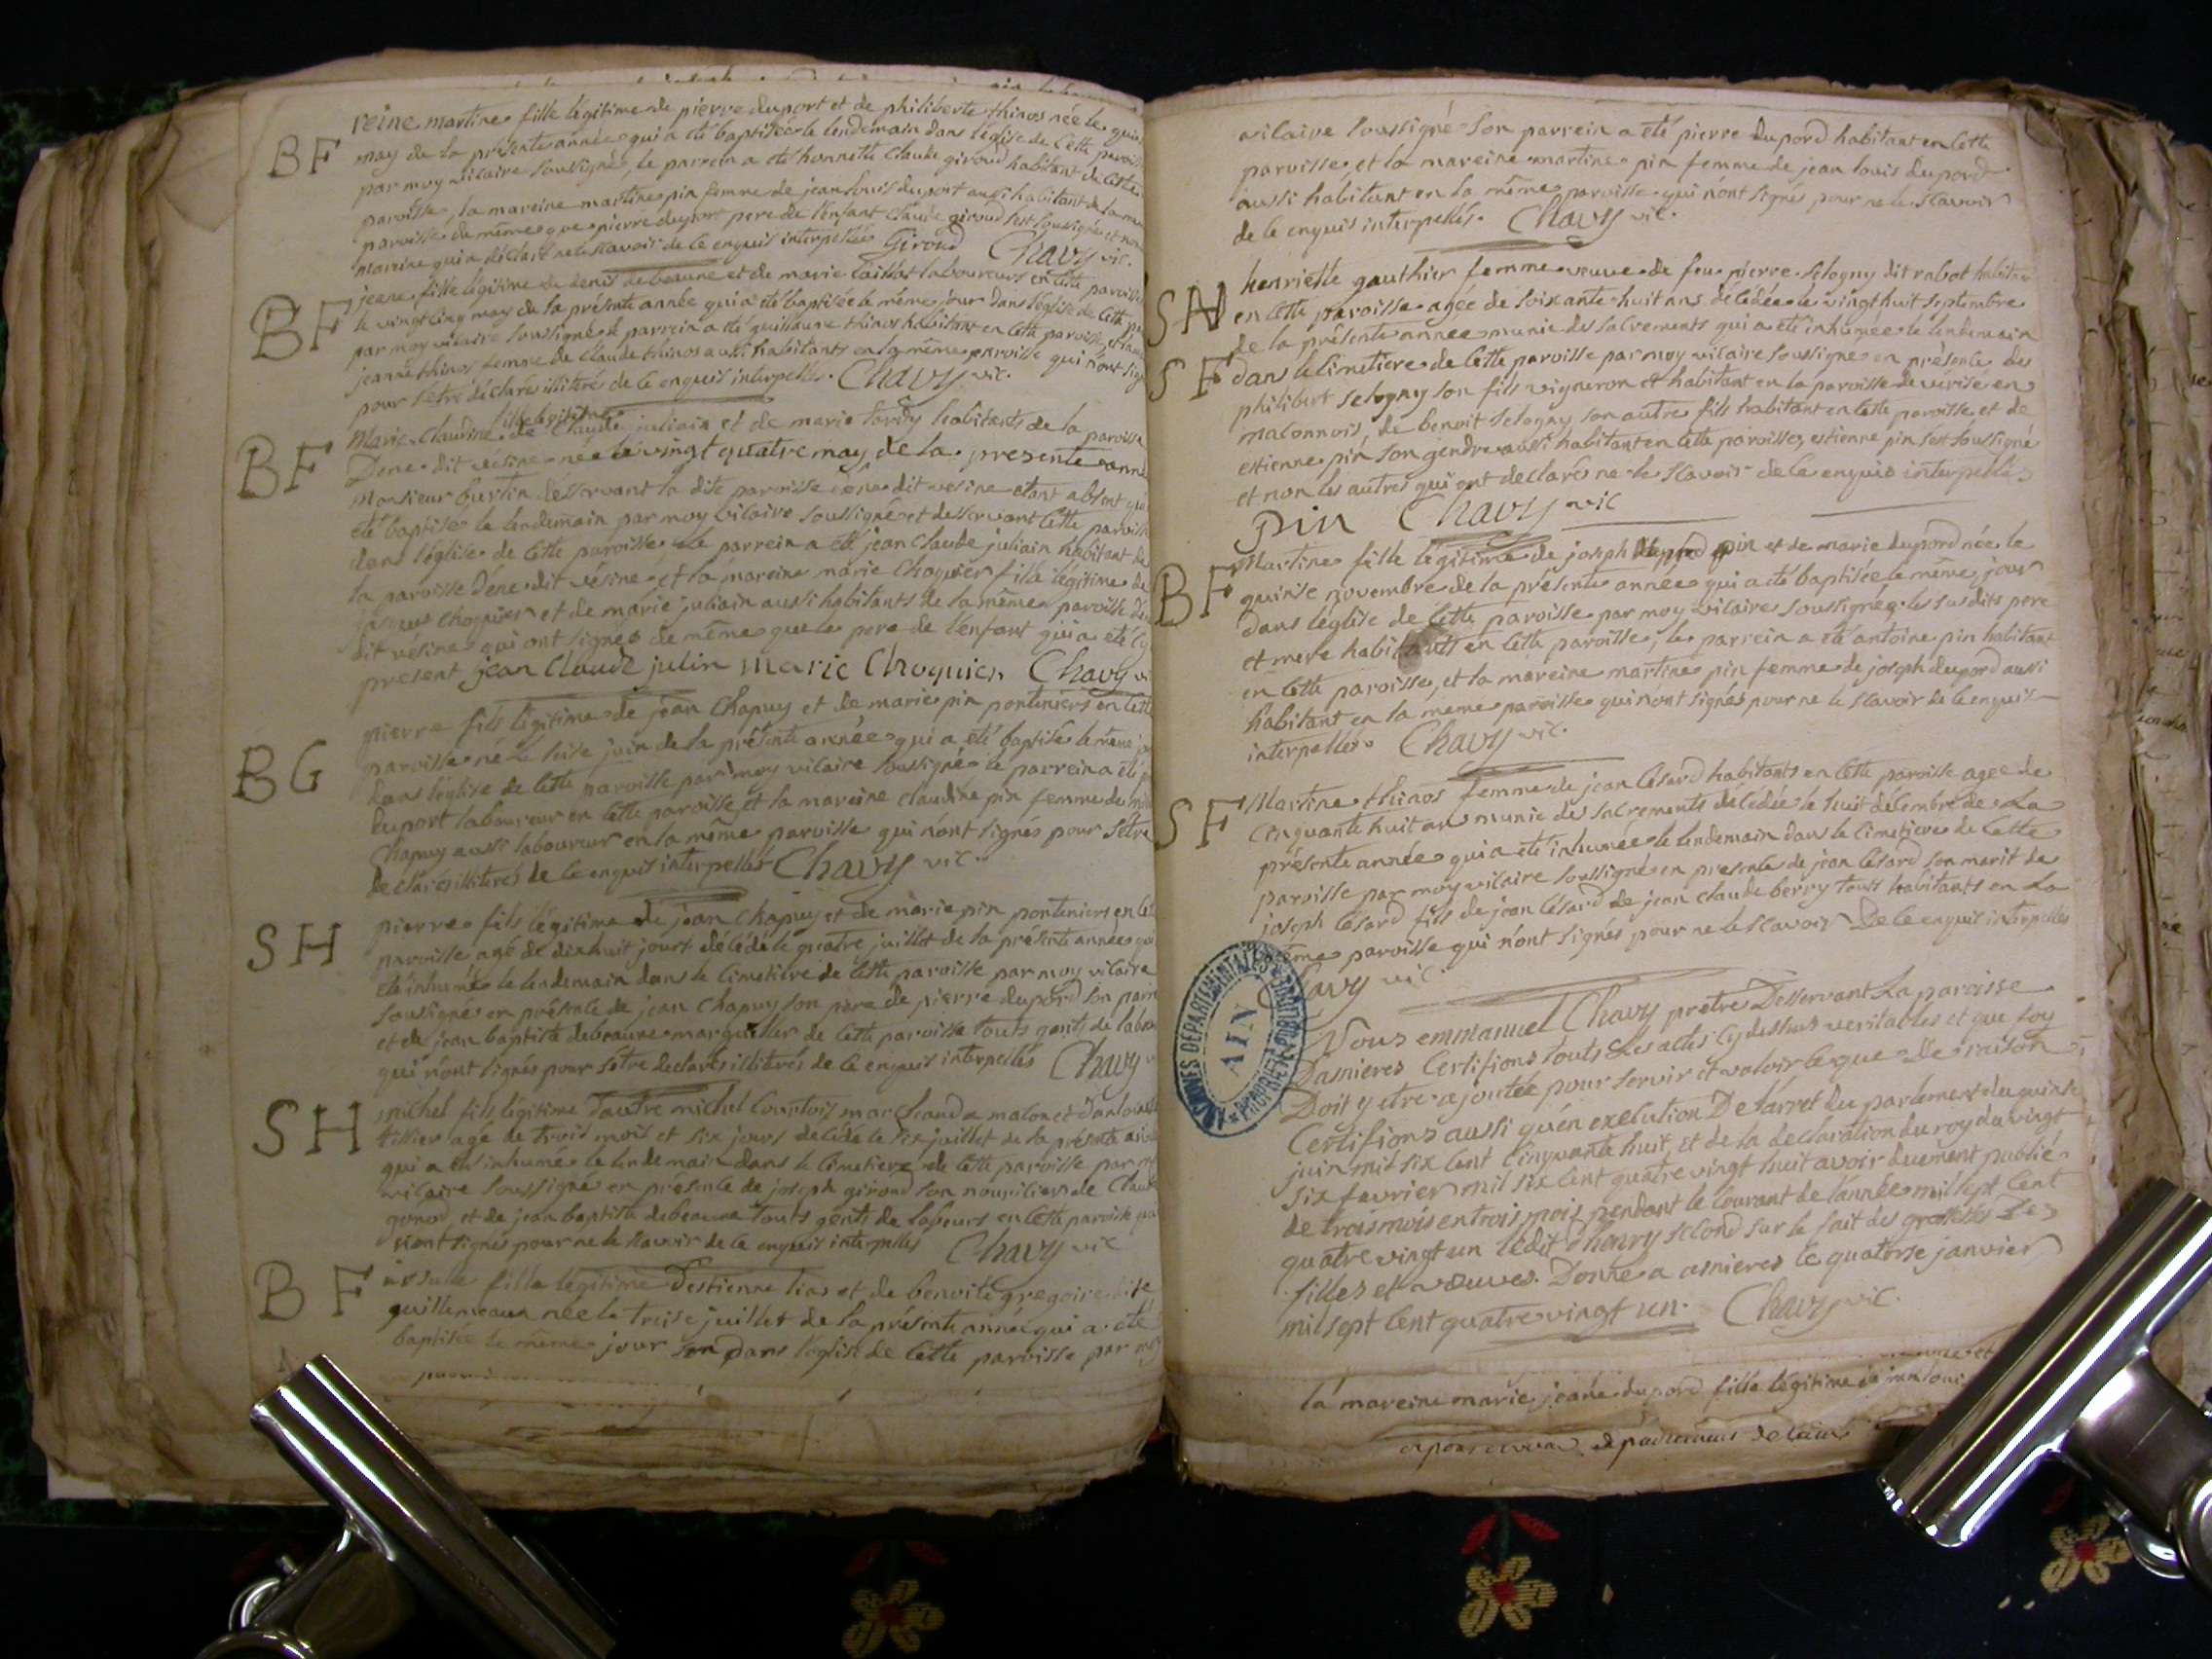 BF
reine martine fille légitime de pierre duport et de philiberte thinos née le quin
may de la présente année qui a été baptisée le lendemain dans l'église de cette paroisse
par moy vicaire soussigné, le parrein a été honnette claude giroud habitant de cette
paroisse, la mareine martine pin femme de jean louis duport aussi habitant de la même
paroisse de même que pierre duport pere de l'enfant claude giroud s'est soussigné et non
mareine qui a déclaré ne le sçavoir de ce enquis interpellée Giroud Chavy vic.
BF
jeane fille légitime de denis debeaune et de marie caillat laboureurs en cette paroisse
le vingt cinq may de la présente année qui a été baptisée le même jour dans l'église de cette
par moy vicaire soussigné le parrein a été guillaume thinos habitant en cette paroisse, et la
jeanne thinos femme de claude thinos aussi habitants en la même paroisse qui n'ont sig
pour s'etre déclarés illitérés de ce enquis interpellés. Chavy vic.
BF
Marie Claudine fille légitime de Claude juliain et de marie hordy habitants de la paroisse
Dene dit vésine née le vingt quatre may de la presente anné
Monsieur burtin desservant la dite paroisse dene dit vesine etant absent qui
été baptisée le lendemain par moy vicaire soussigné et desservant cette paroisse
dans l'église de cette paroisse. Le parrein a été jean claude juliain habitant de
la paroisse Dene dit vésine et la mareine marie Choquier fille légitime de
jacques choquier et de marie juliain aussi habitants de la même paroisse D
dit vésine qui ont signés de même que le pere de l'enfant qui a été cy
present jean Claude julin Marie Choquier Chavy vi
BG
pierre fils légitime de jean Chapuy et de marie pin ponteniers en cette
paroisse né le seise juin de la présente année qui a été baptisé le même jour
dans l'église de cette paroisse par moy vicaire soussigné le parrein a été
duport laboureur en cette paroisse et la mareine claudine pin femme de
Chapuy aussi laboureur en la même paroisse qui n'ont signés pour s'etre
declarés illitérés de ce enquis interpellés Chavy vic.
SH
pierre fils légitime de jean Chapuy et de marie pin ponteniers en cet
paroisse agé de dixhuit jours décédé le quatre juillet de la présente année qui
été inhumé le lendemain dans le cimetière de cette paroisse par moy vicaire
soussigné en présence de jean Chapuy son pere de pierre dupord son parr
et de jean baptiste debeaune marguellier de cette paroisse touts gents de labeu
qui n'ont signés pour s'etre déclarés illitérés de ce enquis interpellés Chavy v
SH
michel fils légitime d'autre michel Courtois marchand a macon et d'antoinette
tillier agé de trois mois et six jours décédé le six juillet de la présente année
qui a été inhumé le lendemain dans le cimetiere de cette paroisse par m
vicaire soussigné en présence de joseph giroud son nouricier de Claude
gonod, et de jean baptiste debeaune touts gents de labeurs en cette paroisse qui
n'ont signés pour ne le sçavoir de ce enquis interpellés Chavy vic
BF
ursulle fille légitime d'estienne lias et de benoite gregoire dite
guillemeaux née le treise juillet de la présente année qui a été
baptisée le même jour dans l'église de cette paroisse par moy
vicaire soussigné son parrein a été pierre dupord habitant en cette
paroisse, et la mareine martine pin femme de jean louis dupord
aussi habitant en la même paroisse qui n'ont signés pour ne le sçavoir
de ce enquis interpellés. Chavy vic.
SH
SF
henriette gauthier femme veuve de feu pierre selogny dit rabot habitant
en cette paroisse agée de soixante huit ans décédée le vingt huit septembre
de la présente année munie des sacrements qui a été inhumée le lendemain
dans le cimetiere de cette paroisse par moy vicaire soussigné en présence de
philibert selogny son fils vigneron et habitant en la paroisse de verisé en
maconnois, de benoit selogny son autre fils habitant en cette paroisse et de
estienne pin son gendre aussi habitant en cette paroisse, estienne pin s'est soussigné
et non les autres qui ont déclarés ne le sçavoir de ce enquis interpellés
Pin Chavy vic
BF
Martine fille légitime de joseph pin et de marie dupord née le
quinse novembre de la présente année qui a été baptisée le même jour
dans l'église de cette paroisse par moy vicaire soussigné, les susdits pere
et mere habitants en cette paroisse, le parrein a été antoine pin habitant
en cette paroisse, et la mareine martine pin femme de joseph dupord aussi
habitant en la meme paroisse qui n'ont signés pour ne le sçavoir de ce enquis
interpellés Chavy vic.
SF
Martine thinos femme de jean Césard habitants en cette paroisse agee de
cinquante huit ans munie des sacrements décédée le huit décembre de La
présente année qui a été inhumée le lendemain dans le cimetiere de cette
paroisse par moy vicaire soussigné en presence de jean Césard son marit de
joseph Césard fils de jean Césard de jean claude berry touts habitants en La
même paroisse qui n'ont signés pour ne le sçavoir De ce enquis interpellés
Chavy vic
Nous emmanuel Chavy prêtre Desservant La paroisse
Dasnieres Certifions touts Les actes cy dessus veritables et que foy
Doit y etre ajoutée pour servir et valoir ce que De raison
Certifions aussi qu'en execution De l'arret du parlement du quinse
juin mil six cent Cinquante huit, et de la declaration du roy du vingt
six fevrier mil six cent quatre vingt huit avoir duement publié
de trois mois en trois mois pendant le courant de l'année mil sept cent
quatre vingt un l'edit d'henry second sur le fait des grossesses Des
filles et veuves. Donné a asnieres le quatorse janvier
mil sept cent quatre vingt un. Chavy vic.
ARCHIVES DEPARTEMENTALES
AIN
PROPRIETE PUBLIQUE
la mareine marie jeane dupord fille légitime de jean loui